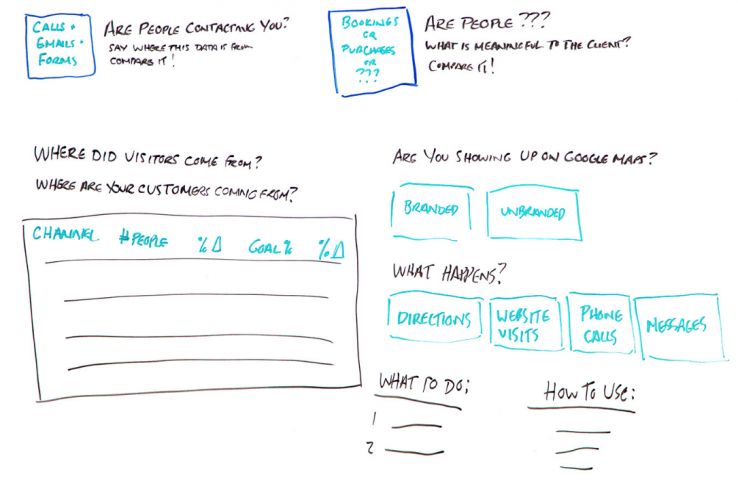 CALLS +
EMAILS +
FORMS
ARE PEOPLE CONTACTING YOU?
SAY WHERE THIS DATA IS FROM
COMPARE IT!
BOOKINGS
OR
PURCHASES
OR
???
ARE PEOPLE ???
WHAT IS MEANINGFUL TO THE CLIENT?
COMPARE IT!
WHERE DID VISITORS COME FROM?
WHERE ARE YOUR CUSTOMERS COMING FROM?
CHANNEL #PEOPLE %Δ GOAL% %Δ
ARE YOU SHOWING UP ON GOOGLE MAPS?
BRANDED UNBRANDED
WHAT HAPPENS?
DIRECTIONS
WEBSITE
VISITS
PHONE
CALLS
MESSAGES
WHAT TO DO:
1
2
HOW TO USE: